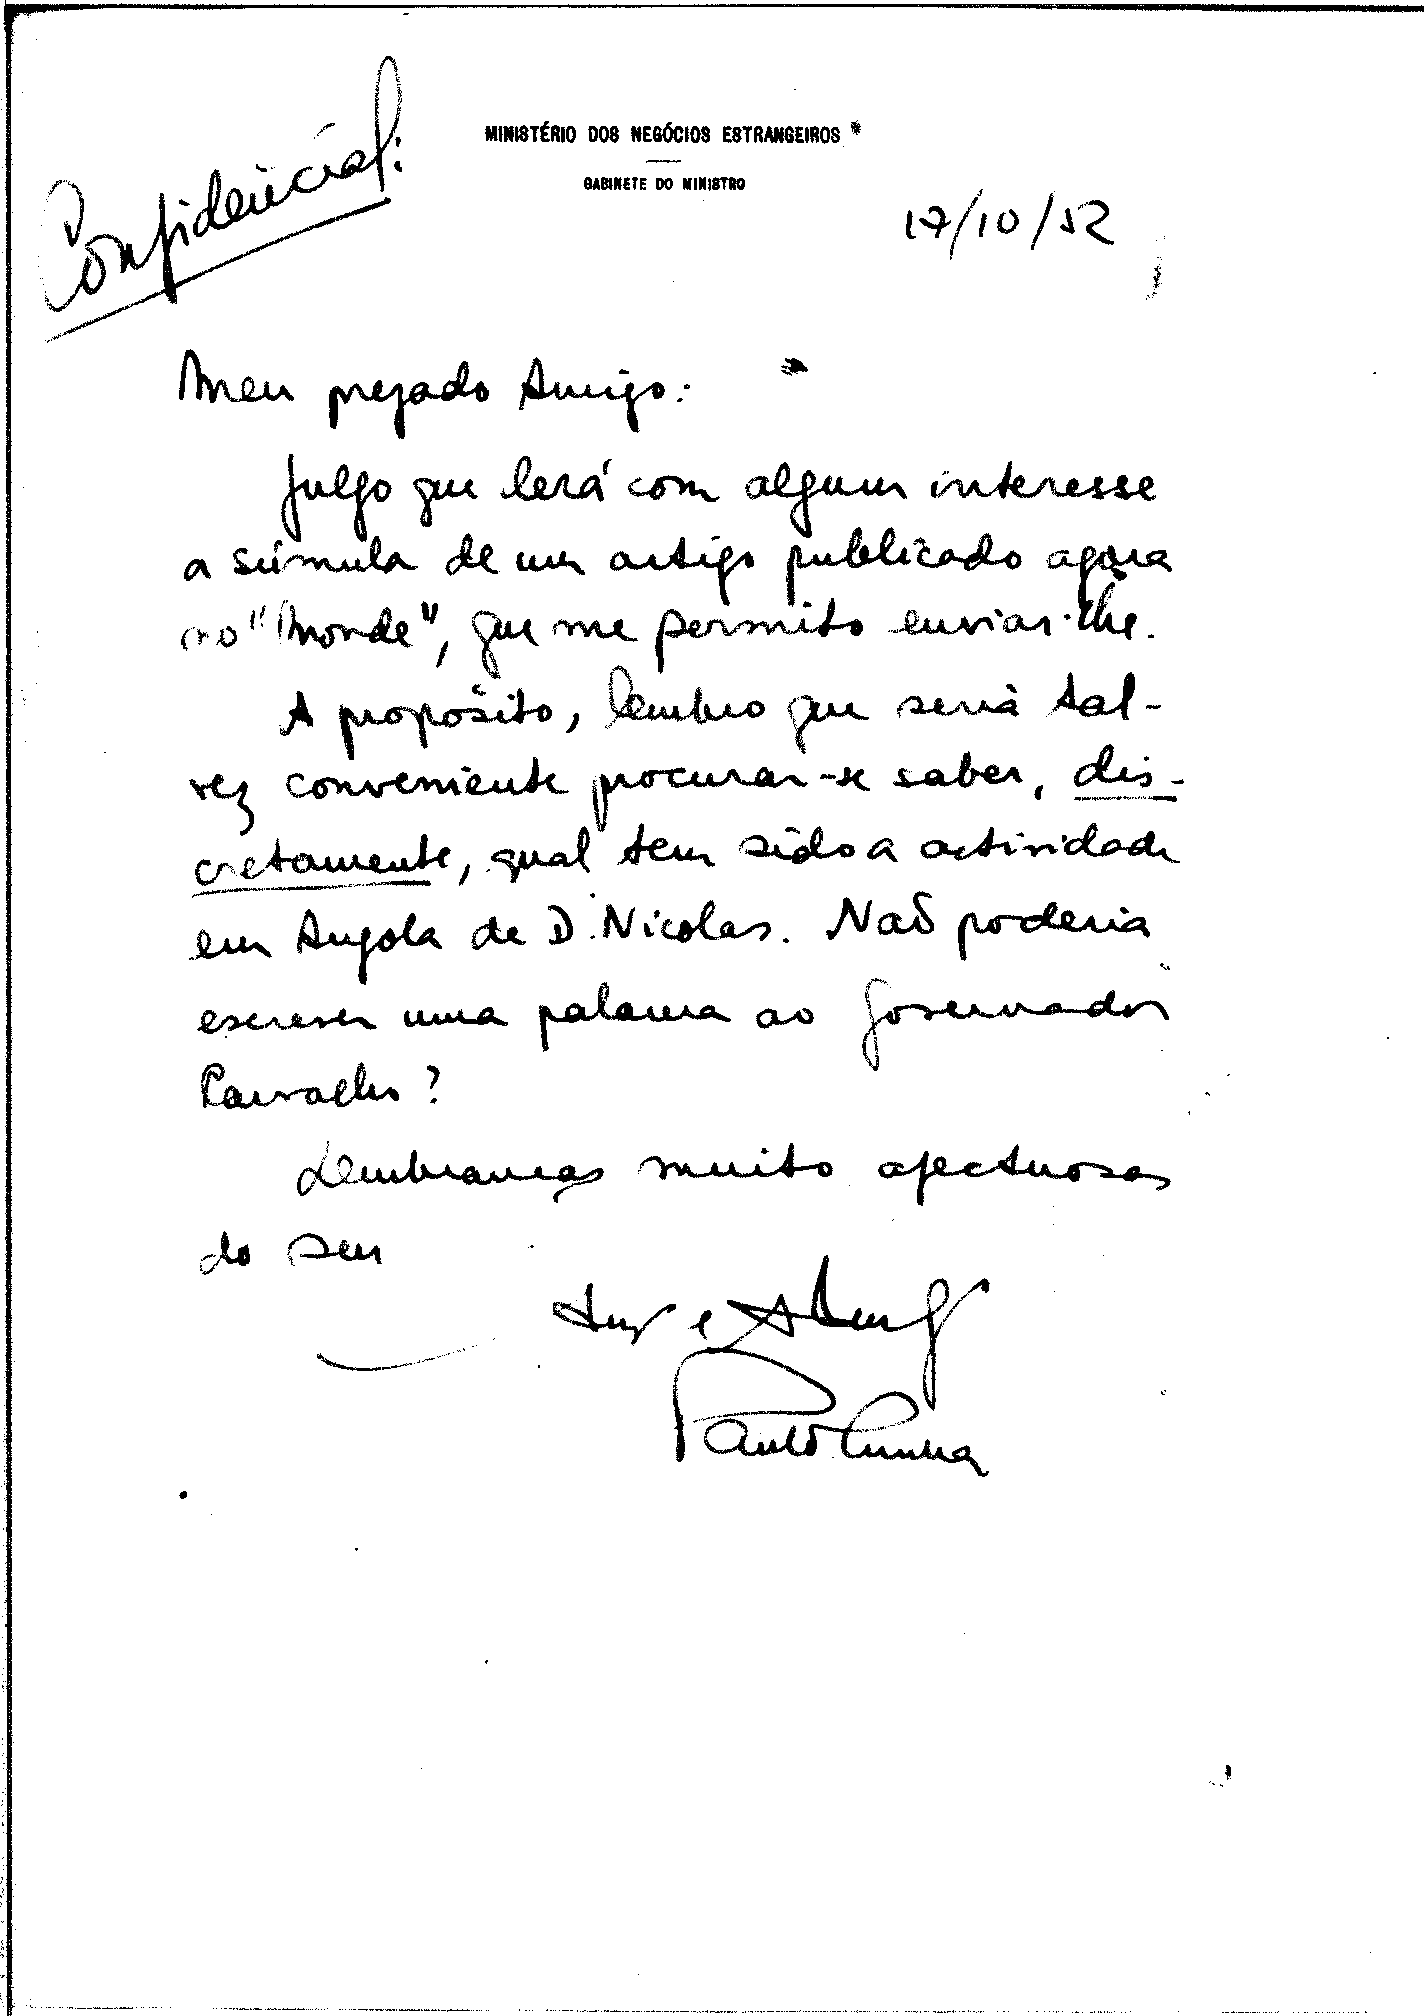 Confidencial:
MINISTÉRIO DOS NEGÓCIOS ESTRANGEIROS
GABINETE DO MINISTRO
17/10/52
Meu prezado Amigo:
Julgo que lerá com algum interesse
a súmula de um artigo publicado agora
no "Monde", que me permito enviar-lhe.
A propósito, lembro que seria tal-
vez conveniente procurar-se saber, dis-
cretamente, qual tem sido a actividade
em Angola de D. Nicolas. Não poderia
escrever uma palavra ao Governador
Carvalho?
Lembranças muito afectuosas
do seu
e
Paulo Cunha